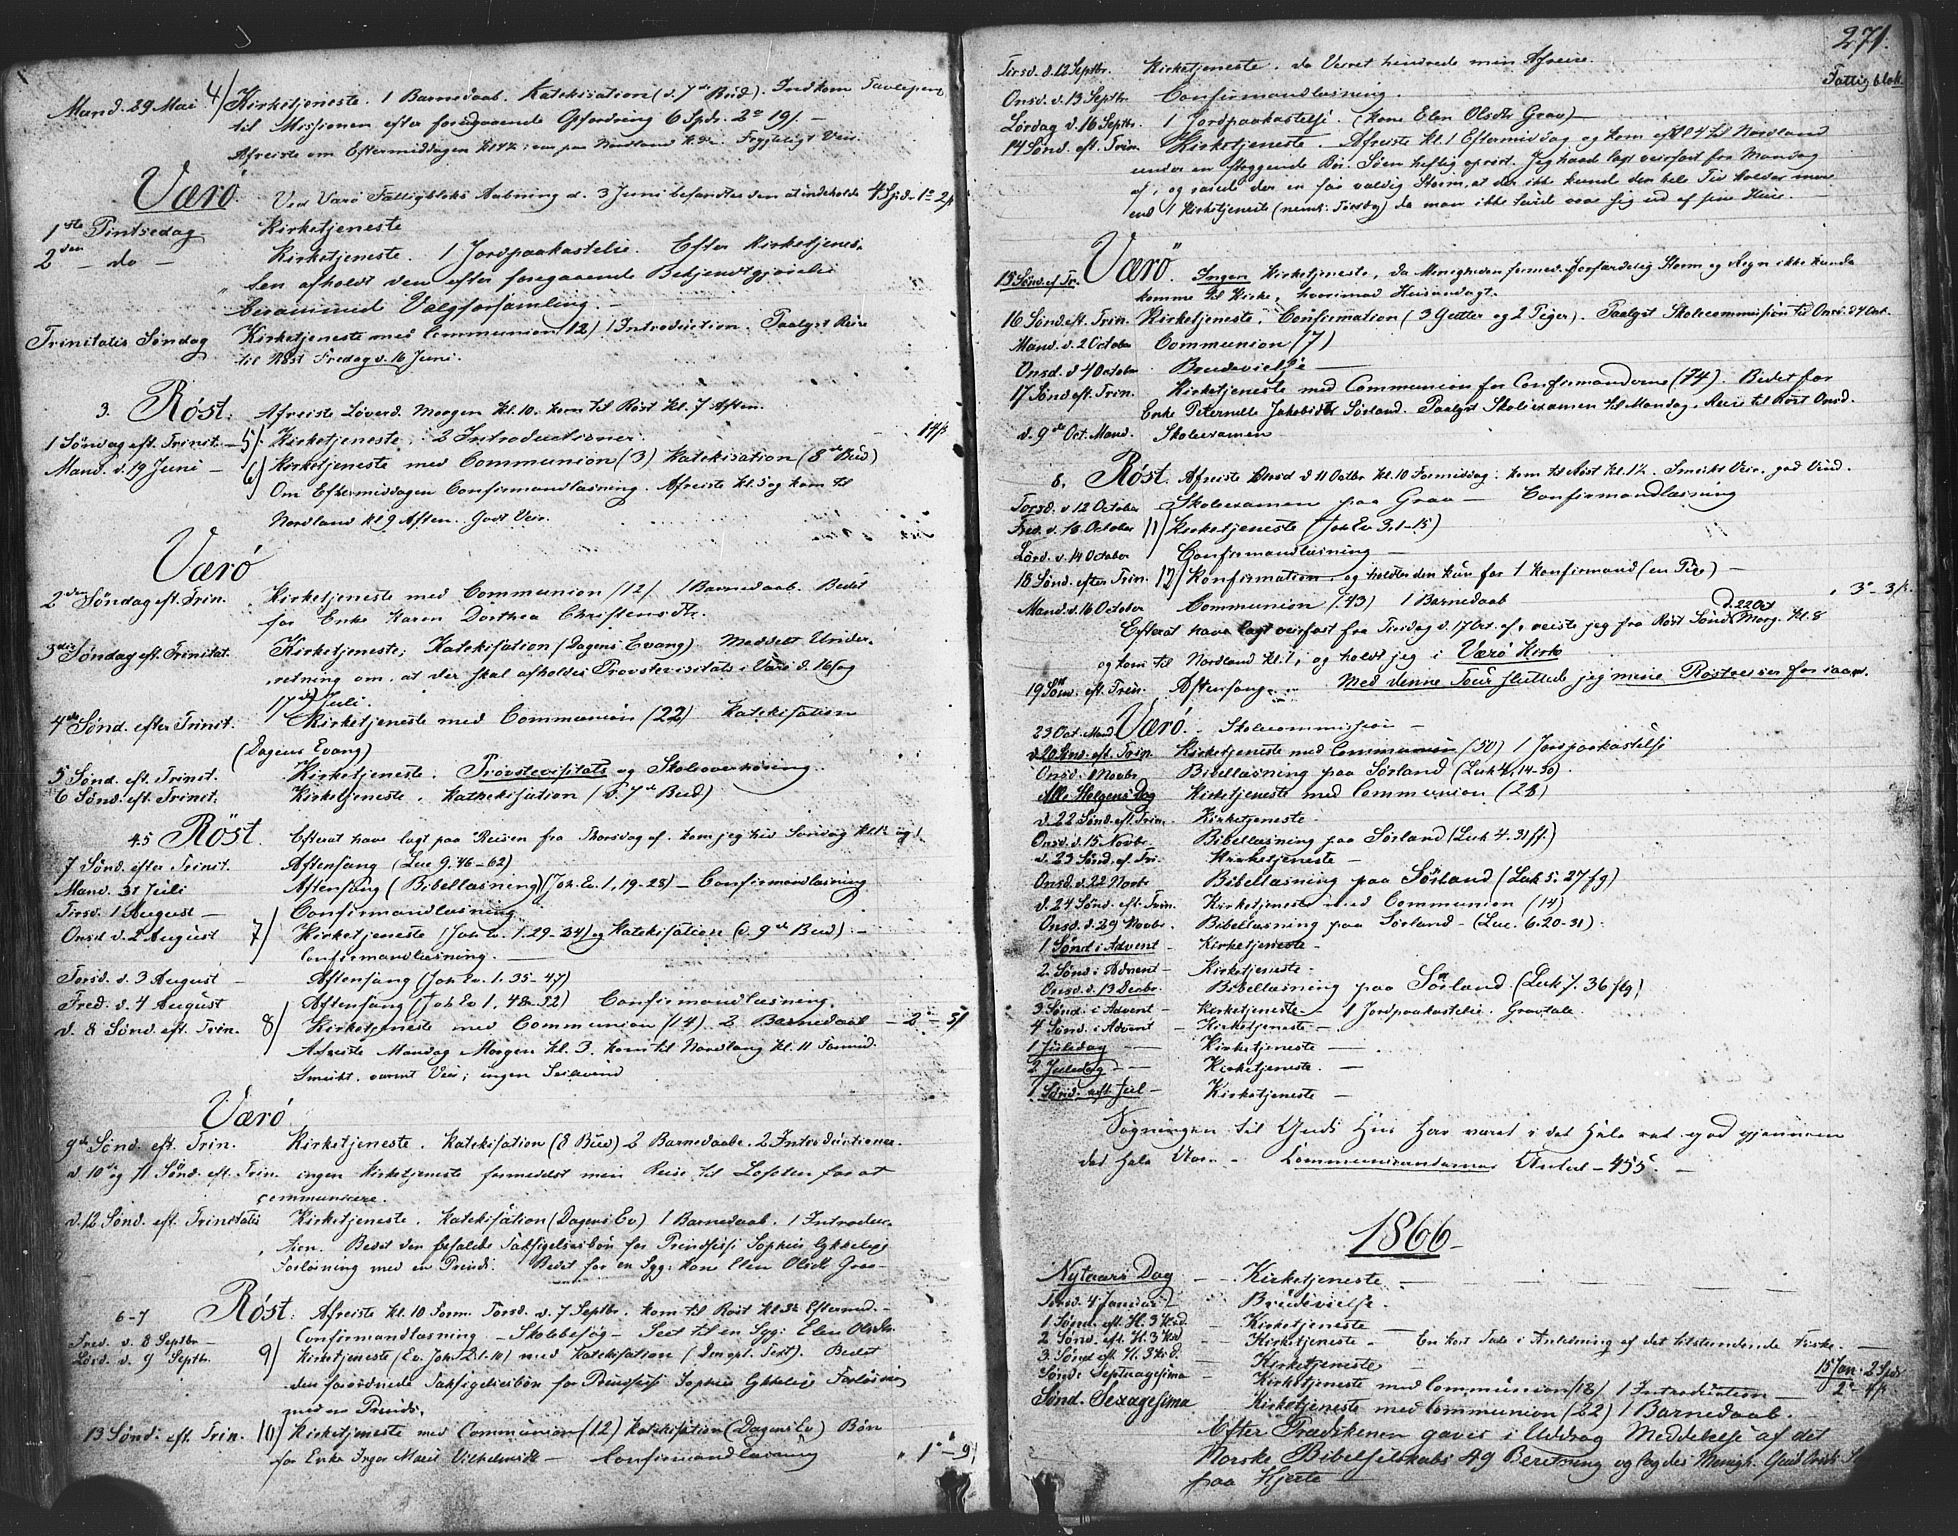 Mand. 29 Mai 4/ Kirketjeneste. 1 Barnedaab. Katekisation (d. 7de Bud). Indkom Tavlepenge
til Missionen efter foregaaende Opfordring 6 Spdr. 2o 19/. —
Afreiste om Eftermiddagen Nordland Veir.
Værö. Ved Værö Fattigbloks Aabning d. 3 Juni befandtes den at indeholde 4 Spd. 1o 2/
1ste Pintsedag Kirketjeneste
2den — do — Kirketjeneste. 1 Jordpaakastelse. Efter Kirketjenes-
ten afholdt den efter foregaaende Bekjendtgjörelse
berammede Valgforsamling —
Trinitatis Söndag Kirketjeneste med Communion (12) 1 Introduction. Paalyst Reise
til Röst Fredag d. 16 Juni.
3. Röst. Afreiste Löverd. Morgen Kl. 10. kom til Röst Kl. 7 Aften.
1 Söndag eft. Trinit. — 5/. Kirketjeneste. 2 Introductioner. — 14/
Mand. d. 19 Juni — 6/ Kirketjeneste med Communion (3) Katekisation (8de Bud)
Om Eftermiddagen Confirmandlæsning. Afreiste Kl. 5 og kom til
Nordland Kl. 9 Aften. Godt Veir.
Værö
2den Söndag eft. Trin. Kirketjeneste med Communion (12). 1 Barnedaab. Bedet
for Enke Karen Dorthea Christensdtr.
3die Söndag eft. Trinitat. Kirketjeneste; Katekisation (Dagens Evang) Meddelt Under-
retning om, at der skal afholdes Provstevisitats i Værö d. 16 og
17de Juli.
4de Sönd. efter Trinit. Kirketjeneste med Communion (22) Katekisation
(Dagens Evang)
5 Sönd. eft. Trinit. Kirketjeneste. Provstevisitats og Skoleoverhöring.
6 Sönd. eft. Trinit. Kirketjeneste. Kathekisation (d. 7de Bud)
45 Röst. Efterat have lagt paa Reisen fra Thorsdag af, kom jeg hid Söndag Kl.
7 Sönd. efter Trinit. Aftensang (Luc 9, 46–62)
Mand. 31 Juli Aftensang (Bibellæsning) (Joh. Ev. 1, 19–28) — Confirmandlæsning
Tirsd. 1 August — Confirmandlæsning.
Onsd d. 2 August 7/ Kirketjeneste (Joh. Ev. 1. 29–34) og Katekisation (d. 9de Bud) —
Confirmandlæsning. —
Torsd. d. 3 August — Aftensang (Joh Ev. 1. 35–47)
Fred. d. 4 August Aftensang (Joh Ev 1, 48–52) Confirmandlæsning.
d. 8 Sönd. eft. Trin. 8/ Kirketjeneste med Communion (14). 2 Barnedaab — 2o – 5/
Afreiste Mandag Morgen Kl. 3. kom til Nordland Kl. 11 Formid.
Smukt, varmt Veir; ingen Seilevind
Værö
9de Sönd. eft. Trin. Kirketjeneste. Katekisation (8 Bud) 2 Barnedaab. 2 Introductioner.
d. 10de og 11 Sönd. eft. Trin. ingen Kirketjeneste formedelst min Reise til Lofoten for at
communicere.
d. 12 Sönd. eft. Trinitatis Kirketjeneste. Katekisation (Dagens Ev) 1 Barnedaab. 1 Introduc-
tion. Bedet den befalede Taksigelsesbön for Prindsesse Sophies lykkelige
Forlösning med en Prinds. Bedet for en Syg: Kone Elen Olsdt. Graa—
6–7 Röst: Afreiste Kl. 10 Form. Torsd. d. 7 Septbr. kom til Röst Kl. Eftermid. —
Fred. d. 8 Septbr — Confirmandlæsning — Skolebesög — Seet til en Syg: Elen Olsdtr.
Lörd. d. 9 Septbr. 9/ Kirketjeneste (Ev. Joh. 2. 1–10) med Katekisation (Den opl. Text). Bedet
den forordnede Taksigelsesbön for Prindsesse Sophies lykkelige Forlösning
med en Prinds.
13 Sönd. eft. Trin. 10/ Kirketjeneste med Communion (12) Katekisation (Dagens Ev) Bön
for Enke Inger Marie Vilhelmsdt — Confirmandlæsning „ 1o – 9/
271.
Fattigblok.
Tirsd. d. 12 Septbr. Kirketjeneste. da Veiret hindrede min Afreise.
Onsd. d. 13 Septbr Confirmandlæsning.
Lördag d. 16 Septbr. 1 Jordpaakastelse (Kone Elen Olsdtr Graa) —
14 Sönd. eft. Trin. Kirketjeneste. Afreiste Kl. 1 Eftermiddag og kom Kl. 4 til Nordland
under en Böi. Söen heftig oprört. Jeg havde lagt veirfast fra Mandag
af, og rasede der en saa voldig Storm, at der ikke kunde den hele Tid holdes mere
end 1 Kirketjeneste (neml: Tirsdag) da man ikke turde vove sig ud af sine Huse.
15 Sönd. ef. Tr. Værö. Ingen Kirketjeneste, da Menigheden formed. forfærdelig Storm og Regn ikke kunde
komme til Kirke, hvorimod Huusandagt.
16 Sönd. eft. Trin. Kirketjeneste. Confirmation (3 Gutter og 2 Piger). Paalyst Skolecommission til Onsd. d. 4 Oct.
Mand. d. 2 October Communion (7)
Onsd. d. 4 October Brudevielse —
17 Sönd. eft. Trin. Kirketjeneste med Communion for Confirmanderne (74). Bedet for
Enke Peternelle Jakobsdtr Sörland. Paalyst Skoleexamen til Mandag. Reise til Röst Onsd.
d. 9de Oct. Mand. Skoleexamen
8. Röst. Afreiste Onsd d. 11 Octbr. Kl. 10 Formiddag. kom til Röst Kl. Smukt Veir. god Vind.
Torsd. d. 12 October Skoleexamen paa Graa — Confirmandlæsning
Fred. d. October 11/ Kirketjeneste (Joh Ev 3, 1–15)
Lörd. d. 14 October Confirmandlæsning —
18 Sönd. efter Trin. 12/ Konfirmation. og holdtes den kun for 1 Konfirmand (en Pige) —
Mand. d. 16 October Communion (43) 1 Barnedaab „ 3o – 3/
Efterat have lagt veirfast fra Tirsdag d. 17 Oct. af, reiste jeg fra Röst Sönd. d. 22 Oct Morg. Kl. 8
og kom til Nordland Kl. 1, og holdt jeg i Værö Kirke
19 Sönd. eft. Trin. Aftensang. — Med denne Tour sluttede jeg mine Röstreiser for iaar.
23 Oct. Mand Værö. Skolecommission —
d. 20 Sönd. eft. Trin. Kirketjeneste med Communion (30) 1 Jordpaakastelse
Onsd. 1 Novbr Bibellæsning paa Sörland (Luk 4, 14–30).
Alle Helgens Dag Kirketjeneste med Communion (28)
d. 22 Sönd. eft. Trin. Kirketjeneste —
Onsd. d. 15 Novbr. Bibellæsning paa Sörland (Luk 4. 31 ff.)
d. 23 Sönd. ef. Tri. Kirketjeneste —
Onsd. d. 22 Novbr Bibellæsning paa Sörland (Luk 5. 27 fg)
d. 24 Sönd. eft. Trin. Kirketjeneste med Communion (14)
Onsd. d. 29 Novbr. Bibellæsning paa Sörland — (Luc. 6. 20–31).
1 Sönd i Advent — Kirketjeneste —
2. Sönd i Advent — Kirketjeneste —
Onsd. d. 13 Decbr. Bibellæsning paa Sörland (Luk 7. 36 flg)
3 Sönd. i Advent — Kirketjeneste — 1 Jordpaakastelse. Gravtale.
4 Sönd. i Advent — Kirketjeneste —
1 Juledag — Kirketjeneste —
2 Juledag — Kirketjeneste. —
1 Sönd. eft. Jul — Kirketjeneste —
Sögningen til Guds Hus har været i det Hele ret god gjennem
det hele Aar. — Communicanternes Antal — 455. —
1866 —
Nytaars Dag — Kirketjeneste —
Torsd. 4 Januar Brudevielse.
1 Sönd. eft. H. 3 Kd. — Kirketjeneste —
2 Sönd. eft. H. 3 Kd — Kirketjeneste — En kort Tale i Anledning af det tilstundende Fiske. —
3. Sönd eft. H. 3 Kd. — Kirketjeneste — 15 Jan. 2 Spdr
Sönd: Septuagesima Kirketjeneste med Communion (18) 1 Introduction — 2o 4/.
Sönd. Sexagesima Kirketjeneste med Communion (22) 1 Barnedaab.
Efter Prædikenen gaves i Uddrag Meddelelse af det
Norske Bibelselskabs 49 Beretning og lagdes Menigh. Guds Ords
paa Hjerte —